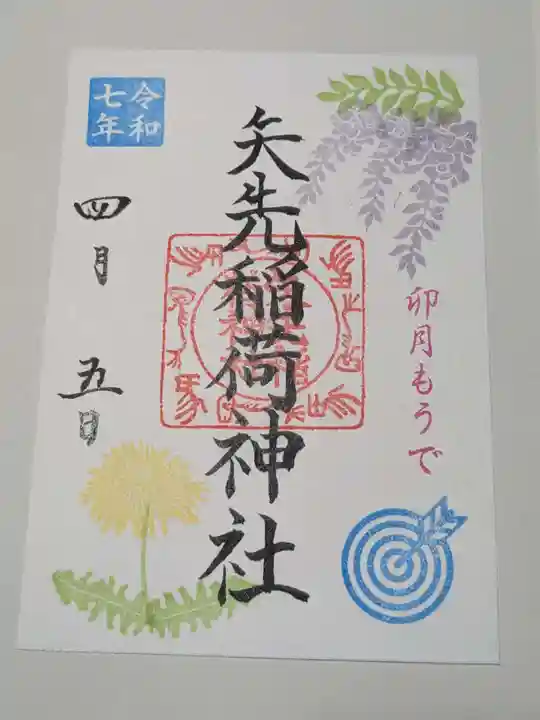 卯月もうで
矢先稲荷神社
令和
七年
四月
五日